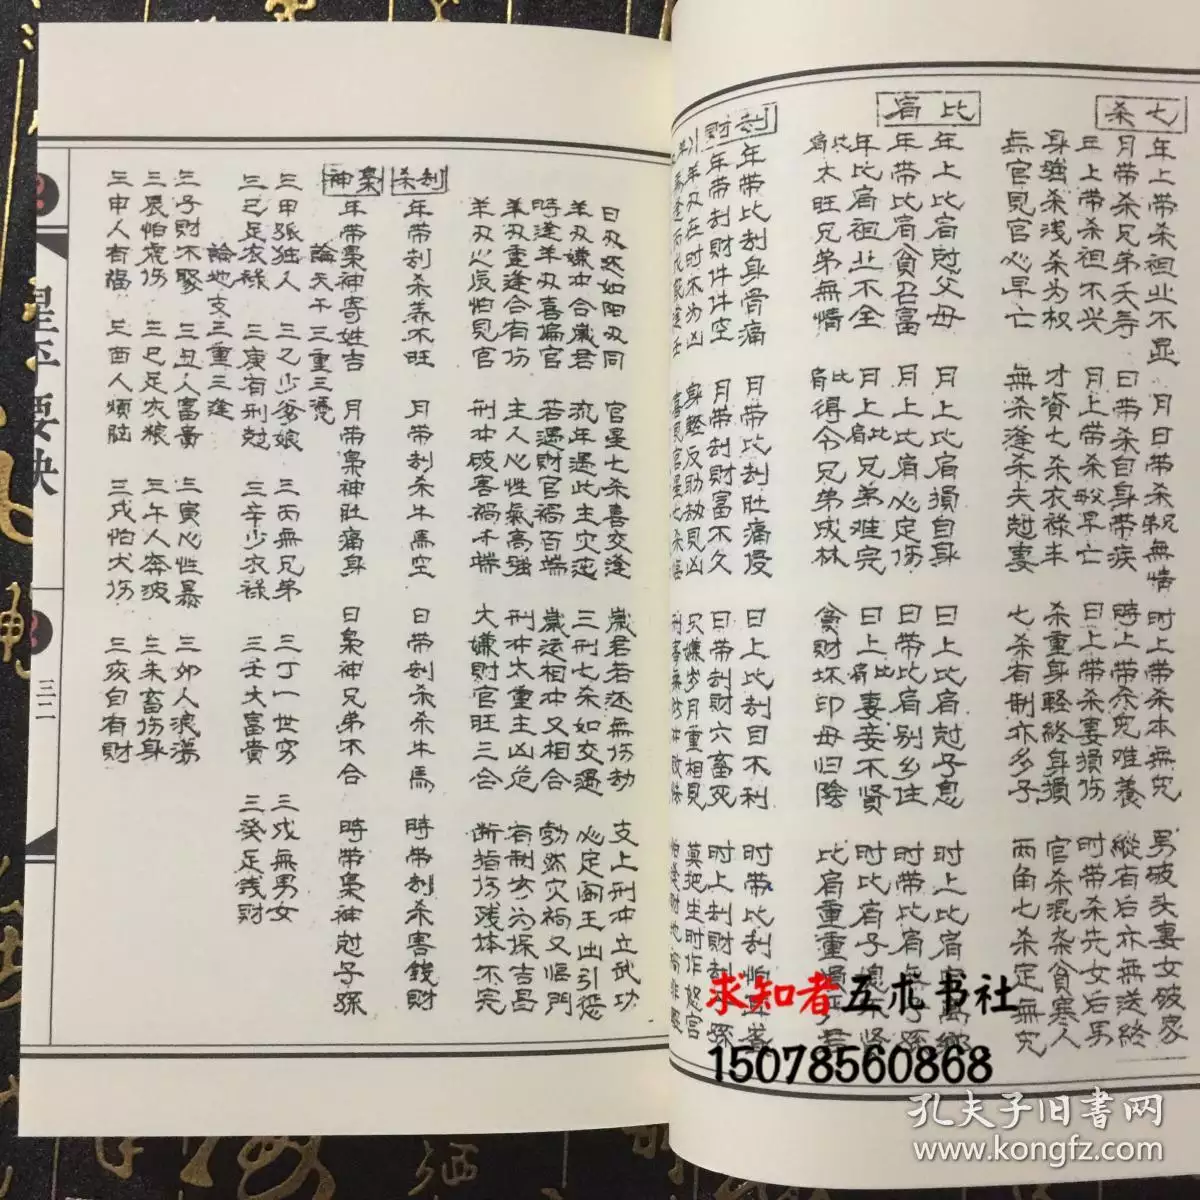 七杀
年上带杀祖业不显 月日带杀親無情 时上带杀本無兇 男破头妻女破家
月带杀兄弟夭寿 日带杀自身带疾 時上带杀兇难養 縱有后亦無送終
年上带杀祖不兴 月上带杀叔早亡 日上带杀妻損伤 时带杀先女后男
身强杀浅杀为权 才資七杀衣禄丰 杀重身軽終身損 官杀混杂貪寒人
無官見官必早亡 無杀逢杀夫尅妻 七杀有制亦多子 两角七杀定無兇
比肩
年上比肩尅父母 月上比肩損自身 日上比肩尅子息 时上比肩
年带比肩貪召富 月上比肩必定伤 日带比肩别乡住 时带比肩
年比肩祖业不全 月上比肩兄弟难完 日上比肩妻妾不贤 时比肩子
比肩太旺兄弟無情 比肩得令兄弟成林 貪財坏印母归陰 比肩重重
刦財
年带比刦身骨痛 月带比刦肚痛侵 日上比刦目不利 时带比刦怕
年带刦財件件空 月带刦財富不久 日带刦財六畜死 时上刦財
羊刃在时不为凶 身輕反助劫見凶 只嫌岁月重相見 莫把生时作怒宫
日刃还如阳刃同 官星七杀喜交逢 歲君若还無伤劫 支上刑冲立武功
羊刃嫌冲合歲君 流年遇此主灾迍 三刑七杀如交遇 必定阎王出引惩
時逢羊刃喜偏官 若遇財官禍百端 歲运相冲又相合 勃然灾禍又临門
羊刃重逢合有伤 主人心性氣高强 刑冲太重主凶危 有制方为保吉昌
羊刃心辰怕見官 刑冲破害禍不端 大嫌財官旺三合 断指伤残体不完
刦杀
年带刦杀养不旺 月带刦杀牛馬空 日带刦杀杀牛馬 時带刦杀害錢財
梟神
年带梟神寄姓吉 月带梟神肚痛身 日梟神兄弟不合 時带梟神尅子孫
論天干三重三逢
三甲孤独人 三乙少爹娘 三丙無兄弟 三丁一世穷 三戊無男女
三己足衣禄 三庚有刑尅 三辛少衣禄 三壬大富貴 三癸足錢財
論地支三重三逢
三子財不聚 三丑人富貴 三寅心性暴 三卯人浪荡
三辰怕虎伤 三巳足衣粮 三午人奔波 三未畜伤身
三申人有福 三酉人煩脑 三戌怕犬伤 三亥自有財
星平要訣
三二
求知者五术书社
15078560868
孔夫子旧书网
www.kongfz.com